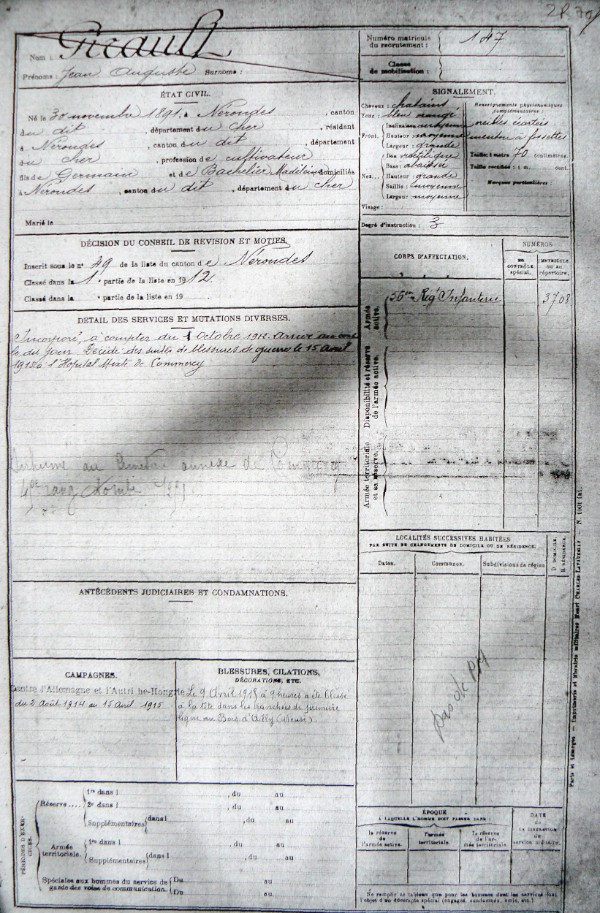 2R 79
Nom : Girault
Prénoms : Jean Auguste Surnoms :
Numéro matricule
du recrutement : 147
Classe
de mobilisation :
ÉTAT CIVIL.
Né le 30 novembre 1891, à Nérondes, canton
du dit, département du Cher, résidant
à Nérondes, canton du dit, département
du Cher, profession de cultivateur
fils de Germain et de Bachelier Madeleine domiciliés
à Nérondes, canton du dit, département du Cher
Marié le
SIGNALEMENT.
Cheveux : chatains
Yeux : bleu orangé
Front. Inclinaison
Hauteur moyenne
Largeur : grande
Nez. Dos rectiligne
Base : abaissée
Hauteur grande
Saillie : moyenne
Largeur moyenne
Visage :
Renseignements physionomiques
complémentaires :
oreilles écartées
menton à fossette
Taille : 1 mètre 70 centimètres.
Taille rectifiée : 1 m. cent.
Marques particulières :
Degré d'instruction : 3
DÉCISION DU CONSEIL DE RÉVISION ET MOTIFS.
Inscrit sous le n° 29 de la liste du canton de Nérondes
Classé dans la 1e partie de la liste en 1912.
Classé dans la e partie de la liste en 19
CORPS D'AFFECTATION.
NUMÉROS
au contrôle spécial.
matricule ou au répertoire.
Armée active.
56me Régt Infanterie
3708
Disponibilité et réserve de l'armée active.
Armée territoriale et sa réserve.
DÉTAIL DES SERVICES ET MUTATIONS DIVERSES.
Incorporé à compter du 1 Octobre 1912. Arrivé au corps
le dit jour. Décédé des suites de blessures de guerre le 15 Avril
1915 à l'Hôpital Mixte de Commercy
Inhumé au Cimetière annexe de Commercy
rang tombe
LOCALITÉS SUCCESSIVES HABITÉES
PAR SUITE DE CHANGEMENTS DE DOMICILE OU DE RÉSIDENCE.
Dates. Communes. Subdivisions de région. D. domicile. R. résidence.
pas de PM
ANTÉCÉDENTS JUDICIAIRES ET CONDAMNATIONS.
CAMPAGNES.
Contre l'Allemagne et l'Autriche-Hongrie
du 2 Août 1914 au 15 Avril 1915
BLESSURES, CITATIONS,
DÉCORATIONS, ETC.
Le 9 Avril 1915 à 9 heures a été blessé
à la tête dans les tranchées de première
ligne au Bois d'Ailly (Meuse).
PÉRIODES D'EXERCICES.
Réserve.....
1re dans l , du au
2e dans l , du au
Supplémentaires dans l , du au
Armée territoriale.
1re dans l , du au
Supplémentaires dans l , du au
Spéciales aux hommes du service de
garde des voies de communication.
Du au
Du au
ÉPOQUE
À LAQUELLE L'HOMME DOIT PASSER DANS :
la réserve de l'armée active.
l'armée territoriale.
la réserve de l'armée territoriale.
DATE
DE LA LIBÉRATION
du service militaire.
Paris et Limoges — Imprimerie et librairie militaires Henri CHARLES-LAVAUZELLE